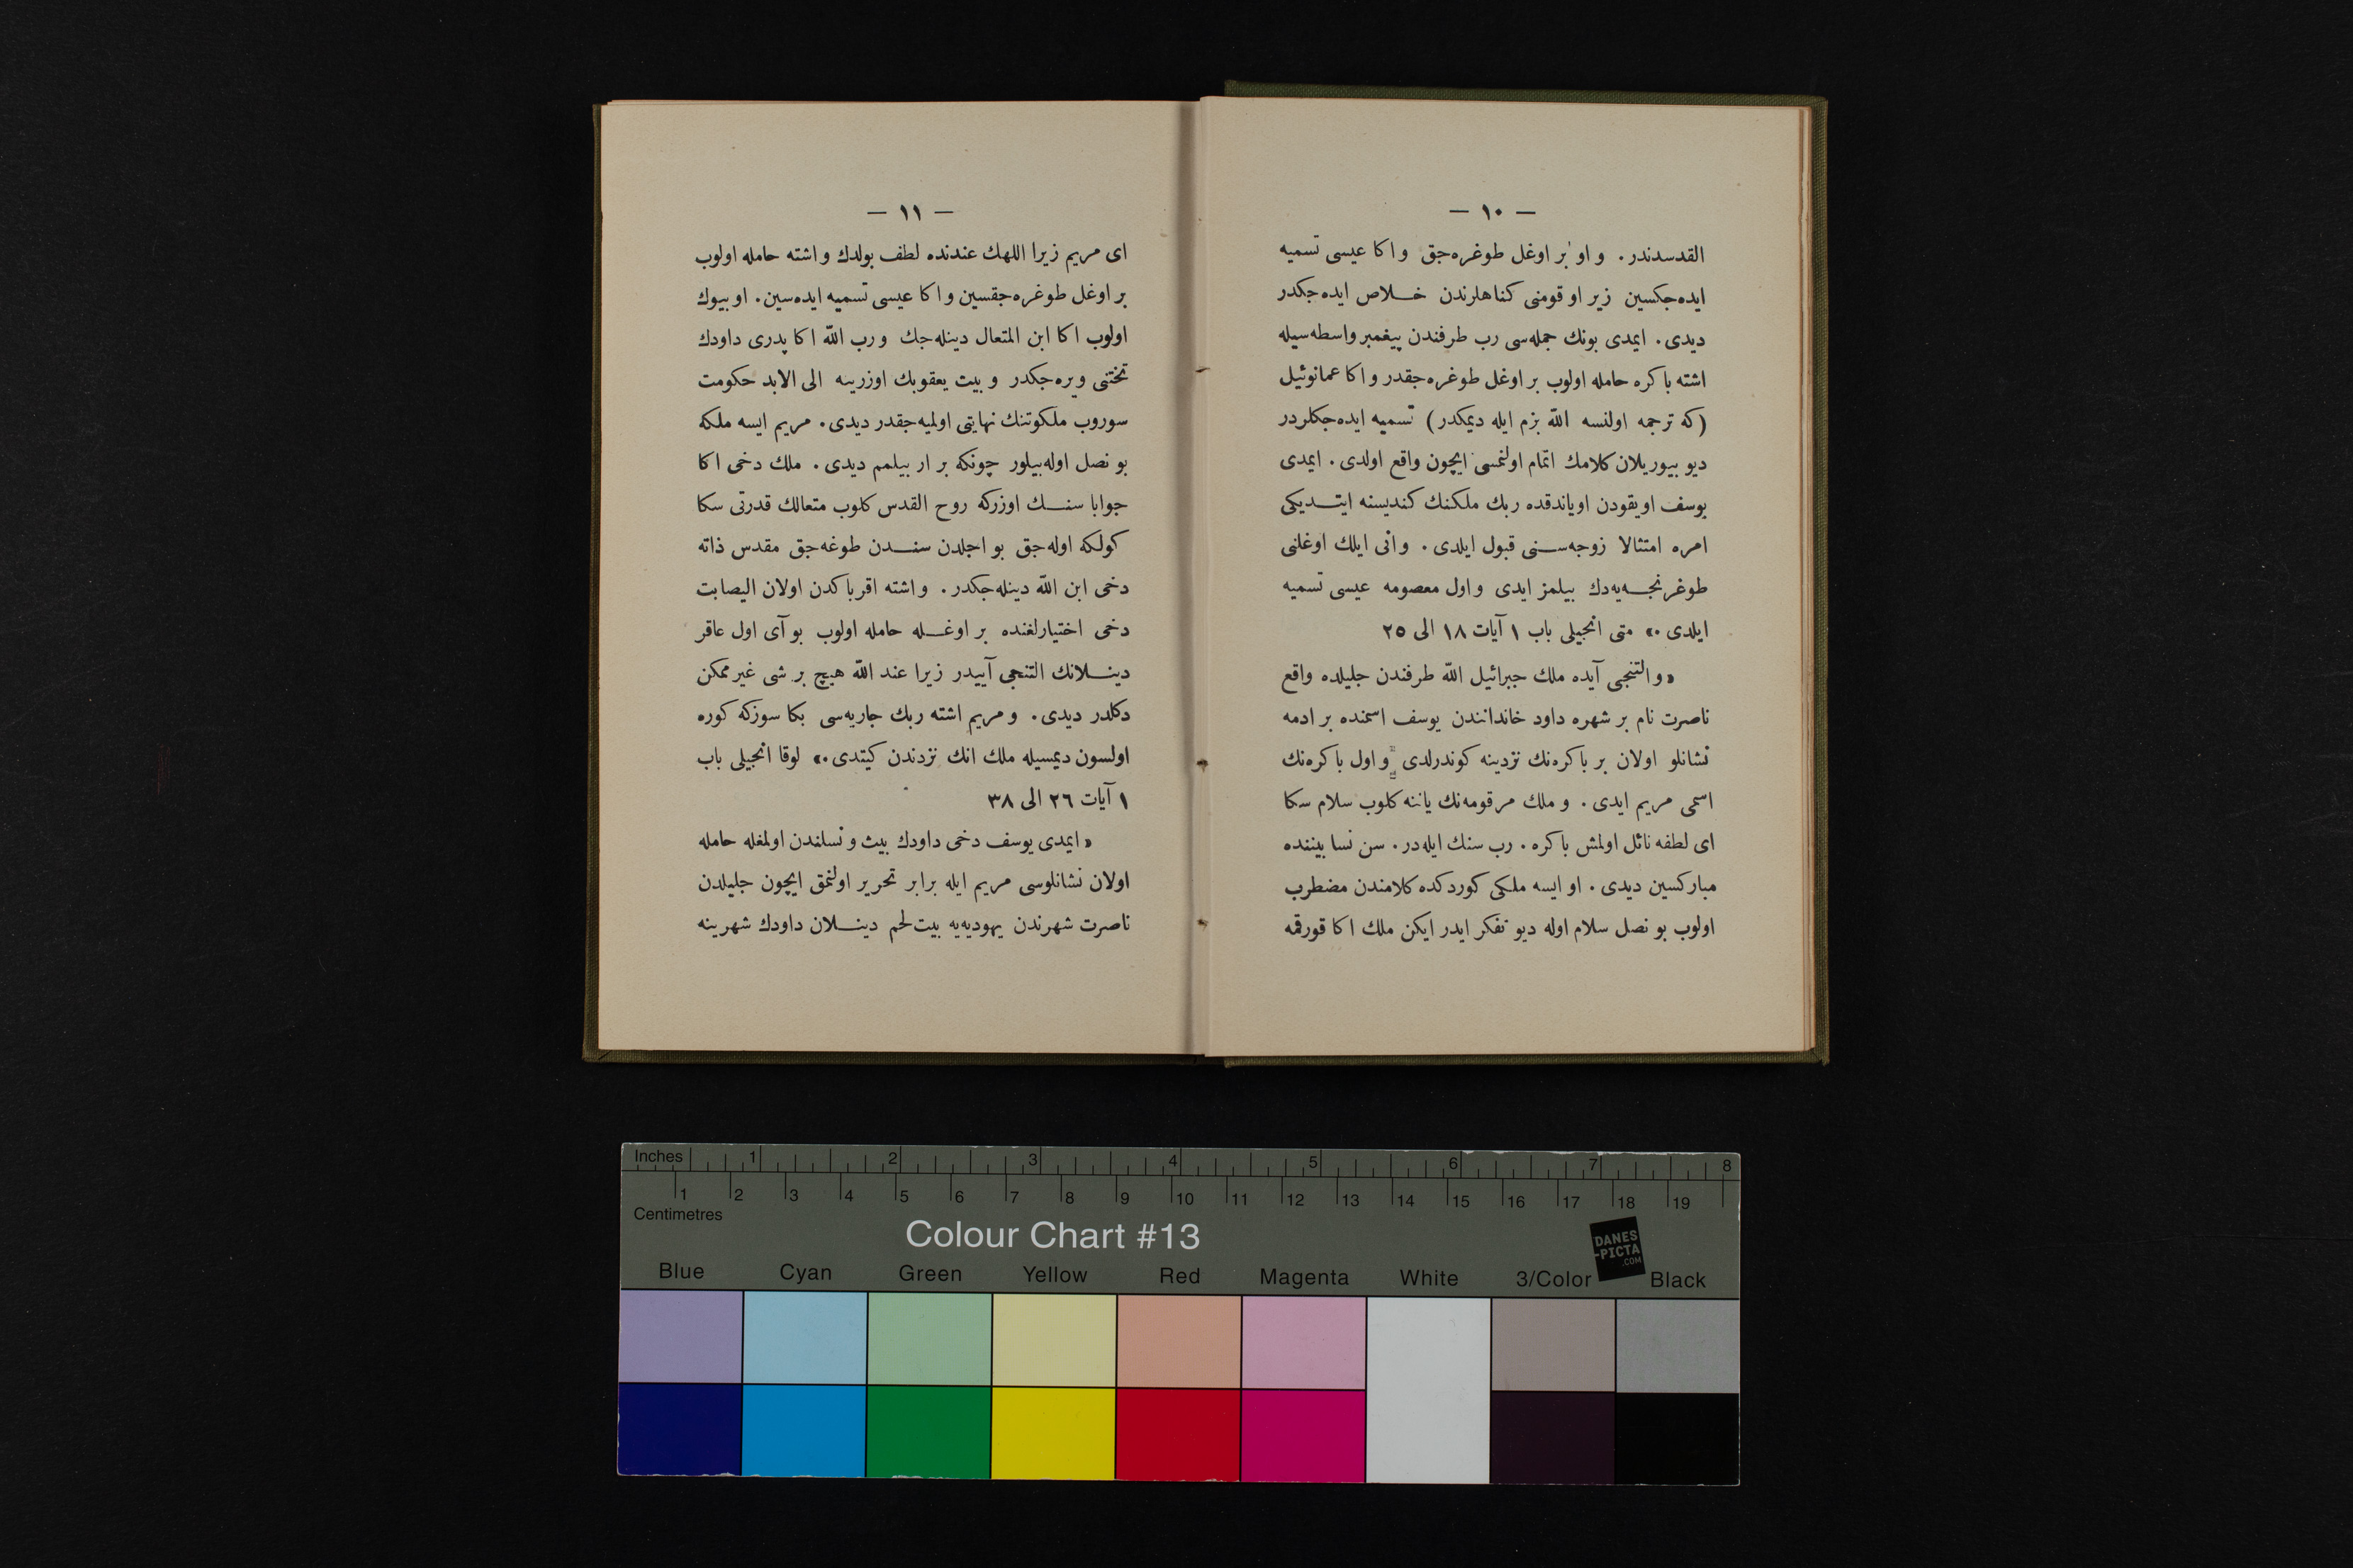 — ١٠ —
القدسدندر . و او بر اوغل طوغره‌جق و اكا عيسى تسميه
ايده‌جكسين زير او قومنى كناهلرندن خلاص ايده‌جكدر
ديدى . ايمدى بونك جمله‌سى رب طرفندن پيغمبر واسطه‌سيله
اشته باكره حامله اولوب بر اوغل طوغره‌جقدر و اكا عمانوئيل
(كه ترجمه اولنسه الله بزم ايله ديمكدر) تسميه ايده‌جكلردر
ديو بيوريلان كلامك اتمام اولنمسى ايچون واقع اولدى . ايمدى
يوسف اويقودن اوياندقده ربك ملكنك كنديسنه ايتديكى
امره امتثالا زوجه‌سنى قبول ايلدى . و انى ايلك اوغلنى
طوغرنجه‌يه‌دك بيلمز ايدى و اول معصومه عيسى تسميه
ايلدى .» متى انجيلى باب ١ آيات ١٨ الى ٢٥
« و التنجى آيده ملك جبرائيل الله طرفندن جليلده واقع
ناصرت نام بر شهره داود خانداننندن يوسف اسمنده بر ادمه
نشانلو اولان بر باكره‌نك نزدينه كوندرلدى و اول باكره‌نك
اسمى مريم ايدى . و ملك مرقومه‌نك ياننه كلوب سلام سكا
اى لطفه نائل اولمش باكره . رب سنك ايله‌در . سن نسا بيننده
مباركسين ديدى . او ايسه ملكى كوردكده كلامندن مضطرب
اولوب بو نصل سلام اوله ديو تفكر ايدر ايكن ملك اكا قورقمه
— ١١ —
اى مريم زيرا اللهك عندنده لطف بولدك و اشته حامله اولوب
بر اوغل طوغره‌جقسين و اكا عيسى تسميه ايده‌سين . او بيوك
اولوب اكا ابن المتعال دينله‌جك و رب الله اكا پدرى داودك
تختنى ويره‌جكدر و بيت يعقوبك اوزرينه الى الابد حكومت
سوروب ملكوتنك نهايتى اولميه‌جقدر ديدى . مريم ايسه ملكه
بو نصل اوله‌بيلور چونكه بر ار بيلمم ديدى . ملك دخى اكا
جوابا سنك اوزركه روح القدس كلوب متعالك قدرتى سكا
كولكه اوله‌جق بو اجلدن سندن طوغه‌جق مقدس ذاته
دخى ابن الله دينله‌جكدر . و اشته اقرباكدن اولان اليصابت
دخى اختيارلغنده بر اوغله حامله اولوب بو آى اول عاقر
دينلانك التنجى آييدر زيرا عند الله هيچ بر شى غير ممكن
دكلدر ديدى . و مريم اشته ربك جاريه‌سى بكا سوزكه كوره
اولسون ديمسيله ملك انك نزدندن كيتدى .» لوقا انجيلى باب
١ آيات ٢٦ الى ٣٨
« ايمدى يوسف دخى داودك بيت و نسلندن اولمغله حامله
اولان نشانلوسى مريم ايله برابر تحرير اولنمق ايچون جليلدن
ناصرت شهرندن يهوديه‌يه بيت‌لحم دينلان داودك شهرينه
Inches 1 2 3 4 5 6 7 8
1 2 3 4 5 6 7 8 9 10 11 12 13 14 15 16 17 18 19
Centimetres
Colour Chart #13
DANES
-PICTA
.COM
Blue Cyan Green Yellow Red Magenta White 3/Color Black